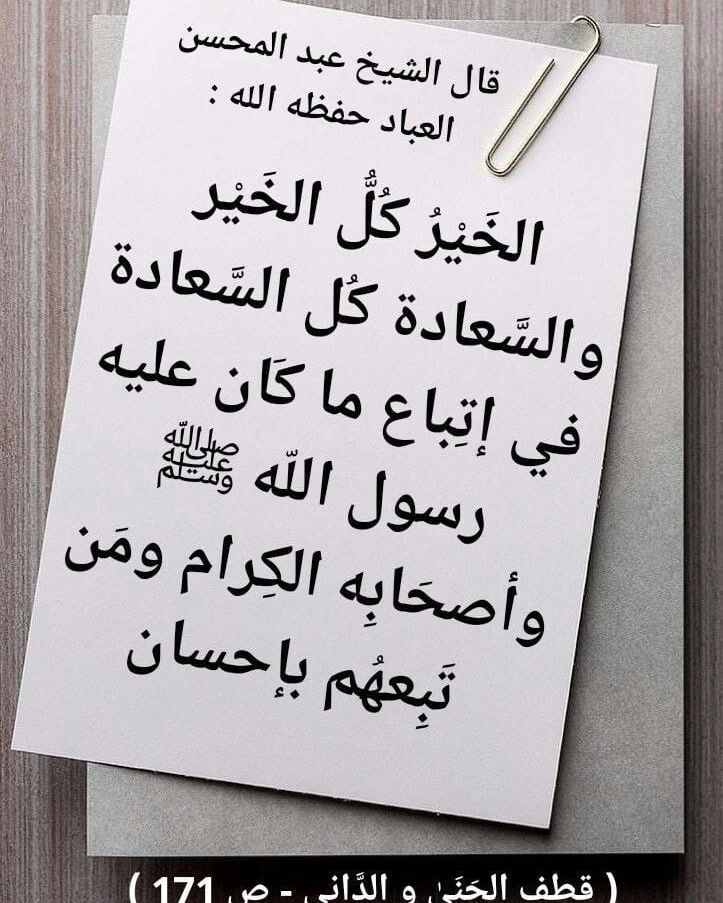 قال الشيخ عبد المحسن
العباد حفظه الله :
الخَيْرُ كُلُّ الخَيْر
والسَّعادة كُل السَّعادة
في إتِباع ما كَان عليه
رسول اللّه ﷺ
وأصحَابِه الكِرام ومَن
تَبِعهُم بإحسان
( قطف الجَنَىٰ و الدَّاني - ص 171 )